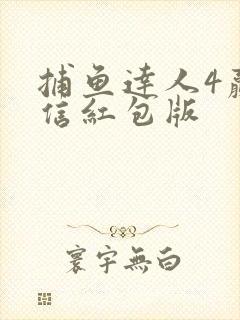 捕鱼逹人4赢
信紅包版
寰宇無白